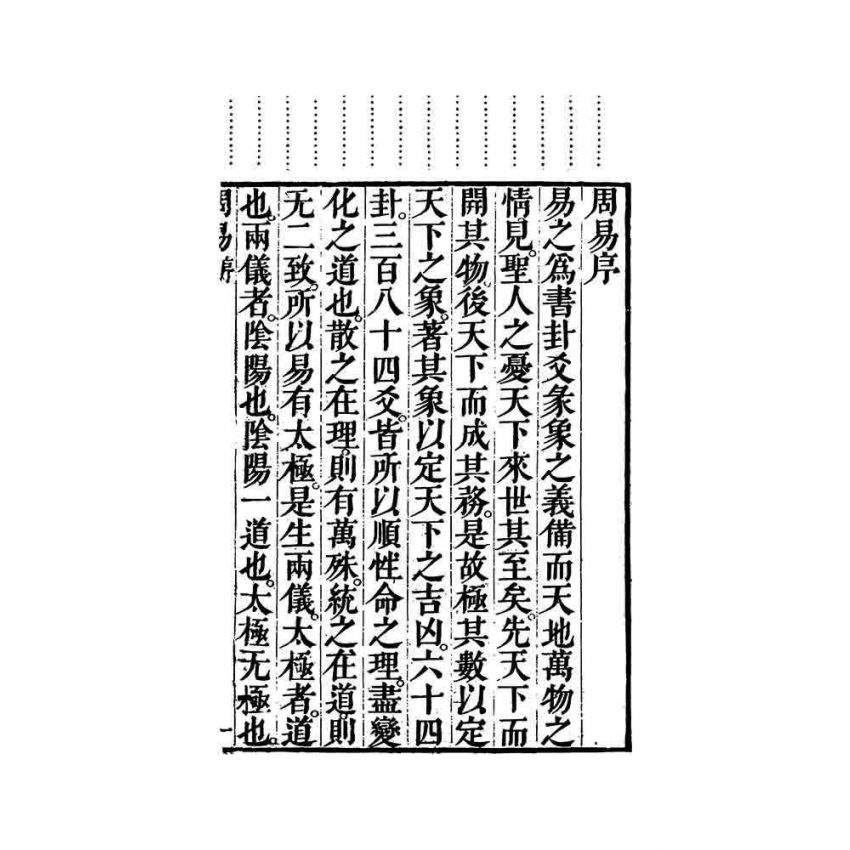 周易序
易之爲書卦爻彖象之義備而天地萬物之
情見。聖人之憂天下來世其至矣。先天下而
開其物。後天下而成其務。是故極其數以定
天下之象。著其象以定天下之吉凶。六十四
卦。三百八十四爻。皆所以順性命之理。盡變
化之道也。散之在理。則有萬殊。統之在道。則
无二致。所以易有太極。是生兩儀。太極者。道
也。兩儀者。陰陽也。陰陽一道也。太極无極也。
周易序 一